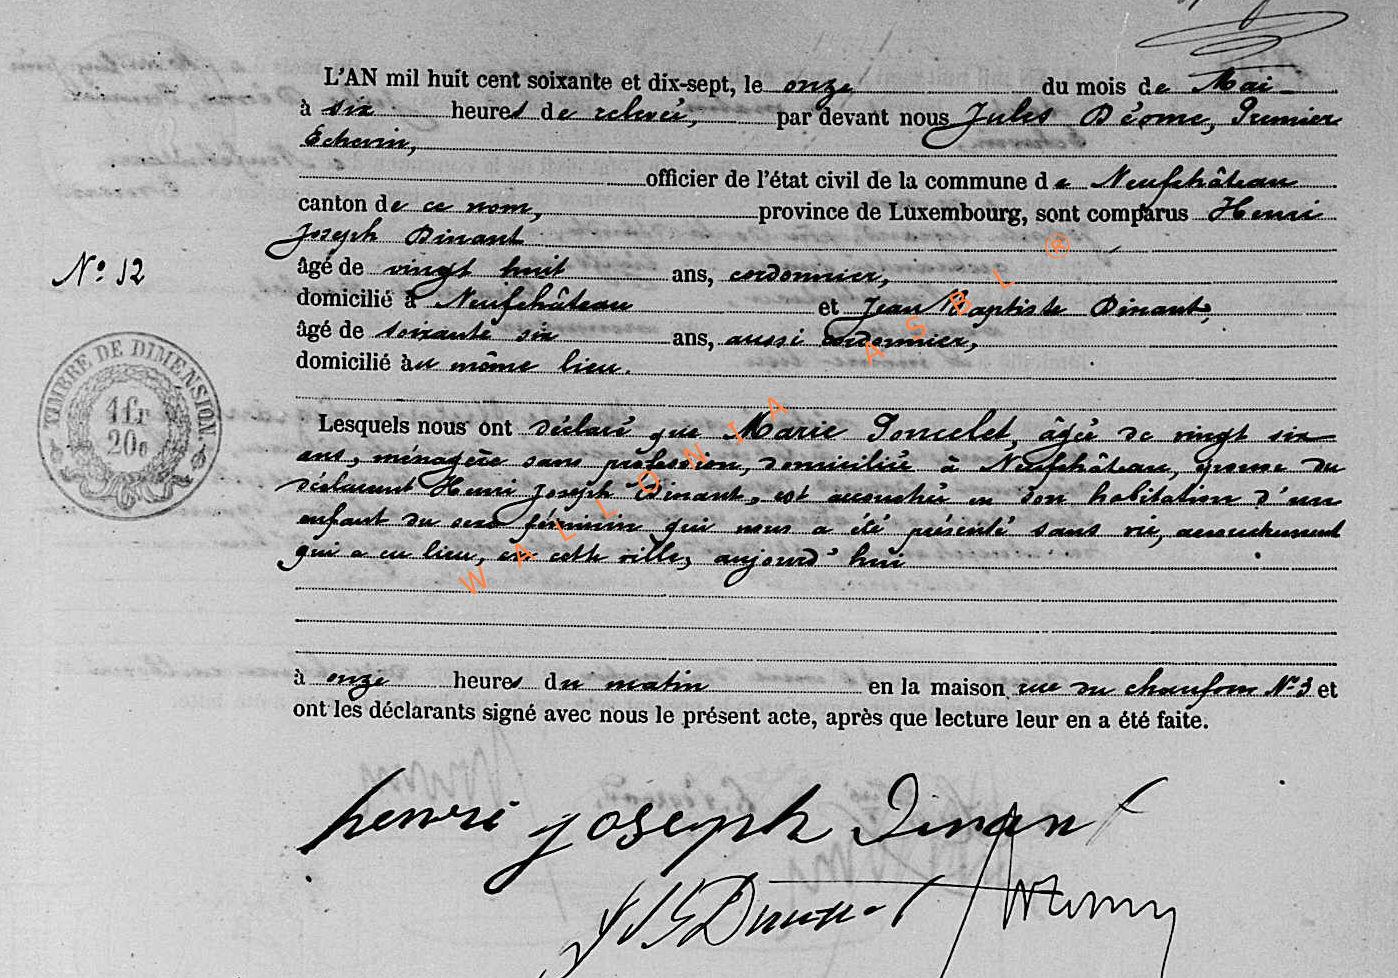 L'AN mil huit cent soixante et dix-sept, le onze du mois de Mai
à six heures de relevée, par devant nous Jules Déome, Premier
Echevin,
officier de l'état civil de la commune de Neufchâteau
canton de ce nom, province de Luxembourg, sont comparus Henri
Joseph Dinant
âgé de vingt huit ans, cordonnier,
domicilié à Neufchâteau et Jean Baptiste Dinant,
âgé de soixante six ans, aussi cordonnier,
domicilié au même lieu.
N° 12
TIMBRE DE DIMENSION.
1 fr
20c
Lesquels nous ont déclaré que Marie Poncelet, âgée de vingt six
ans, ménagère sans profession, domiciliée à Neufchâteau, épouse du
déclarant Henri Joseph Dinant, est accouchée en son habitation d'un
enfant du sexe féminin qui nous a été présenté sans vie, accouchement
qui a eu lieu, en cette ville, aujourd'hui
à onze heures du matin en la maison rue du chaufour N° 3 et
ont les déclarants signé avec nous le présent acte, après que lecture leur en a été faite.
henri joseph Dinant
J B Dinant
WALLONIA ASBL ®